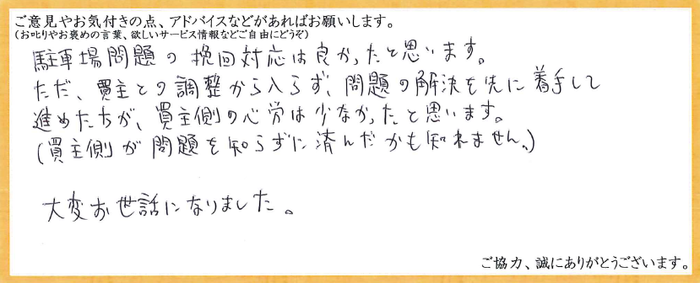 ご意見やお気付きの点、アドバイスなどがあればお願いします。
(お叱りやお褒めの言葉、欲しいサービス情報などご自由にどうぞ)
駐車場問題の挽回対応は良かったと思います。
ただ、買主との調整から入らず、問題の解決を先に着手して
進めたちが、買主側の心労は少なかったと思います。
(買主側が問題を知らずに済んだかも知れません。)
大変お世話になりました。
ご協力、誠にありがとうございます。